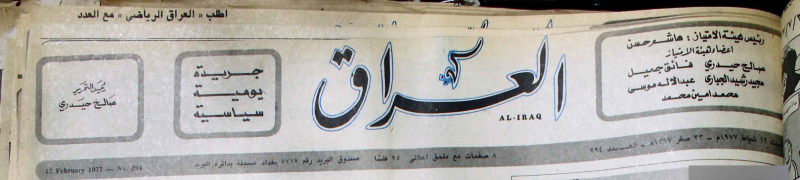 اطلب « العراق الرياضي » مع العدد
رئيس هيئة الامتياز : هاشم حسن
اعضاء هيئة الامتياز
صالح حيدري فائق جميل
مجيد رشيد الجباري عبدالاله موسى
محمد امين محمد
العراق
AL-IRAQ
جريدة
يومية
سياسية
صالح حيدري
١٢ شباط ١٩٧٧م — ٢٣ صفر ١٣٩٧هـ — العدد ٢٩٤
٨ صفحات مع ملحق اعلاني ٢٥ فلسا صندوق البريد رقم ٥٧١٧ بغداد مسجلة بدائرة البريد
12 February 1977 — No. 294